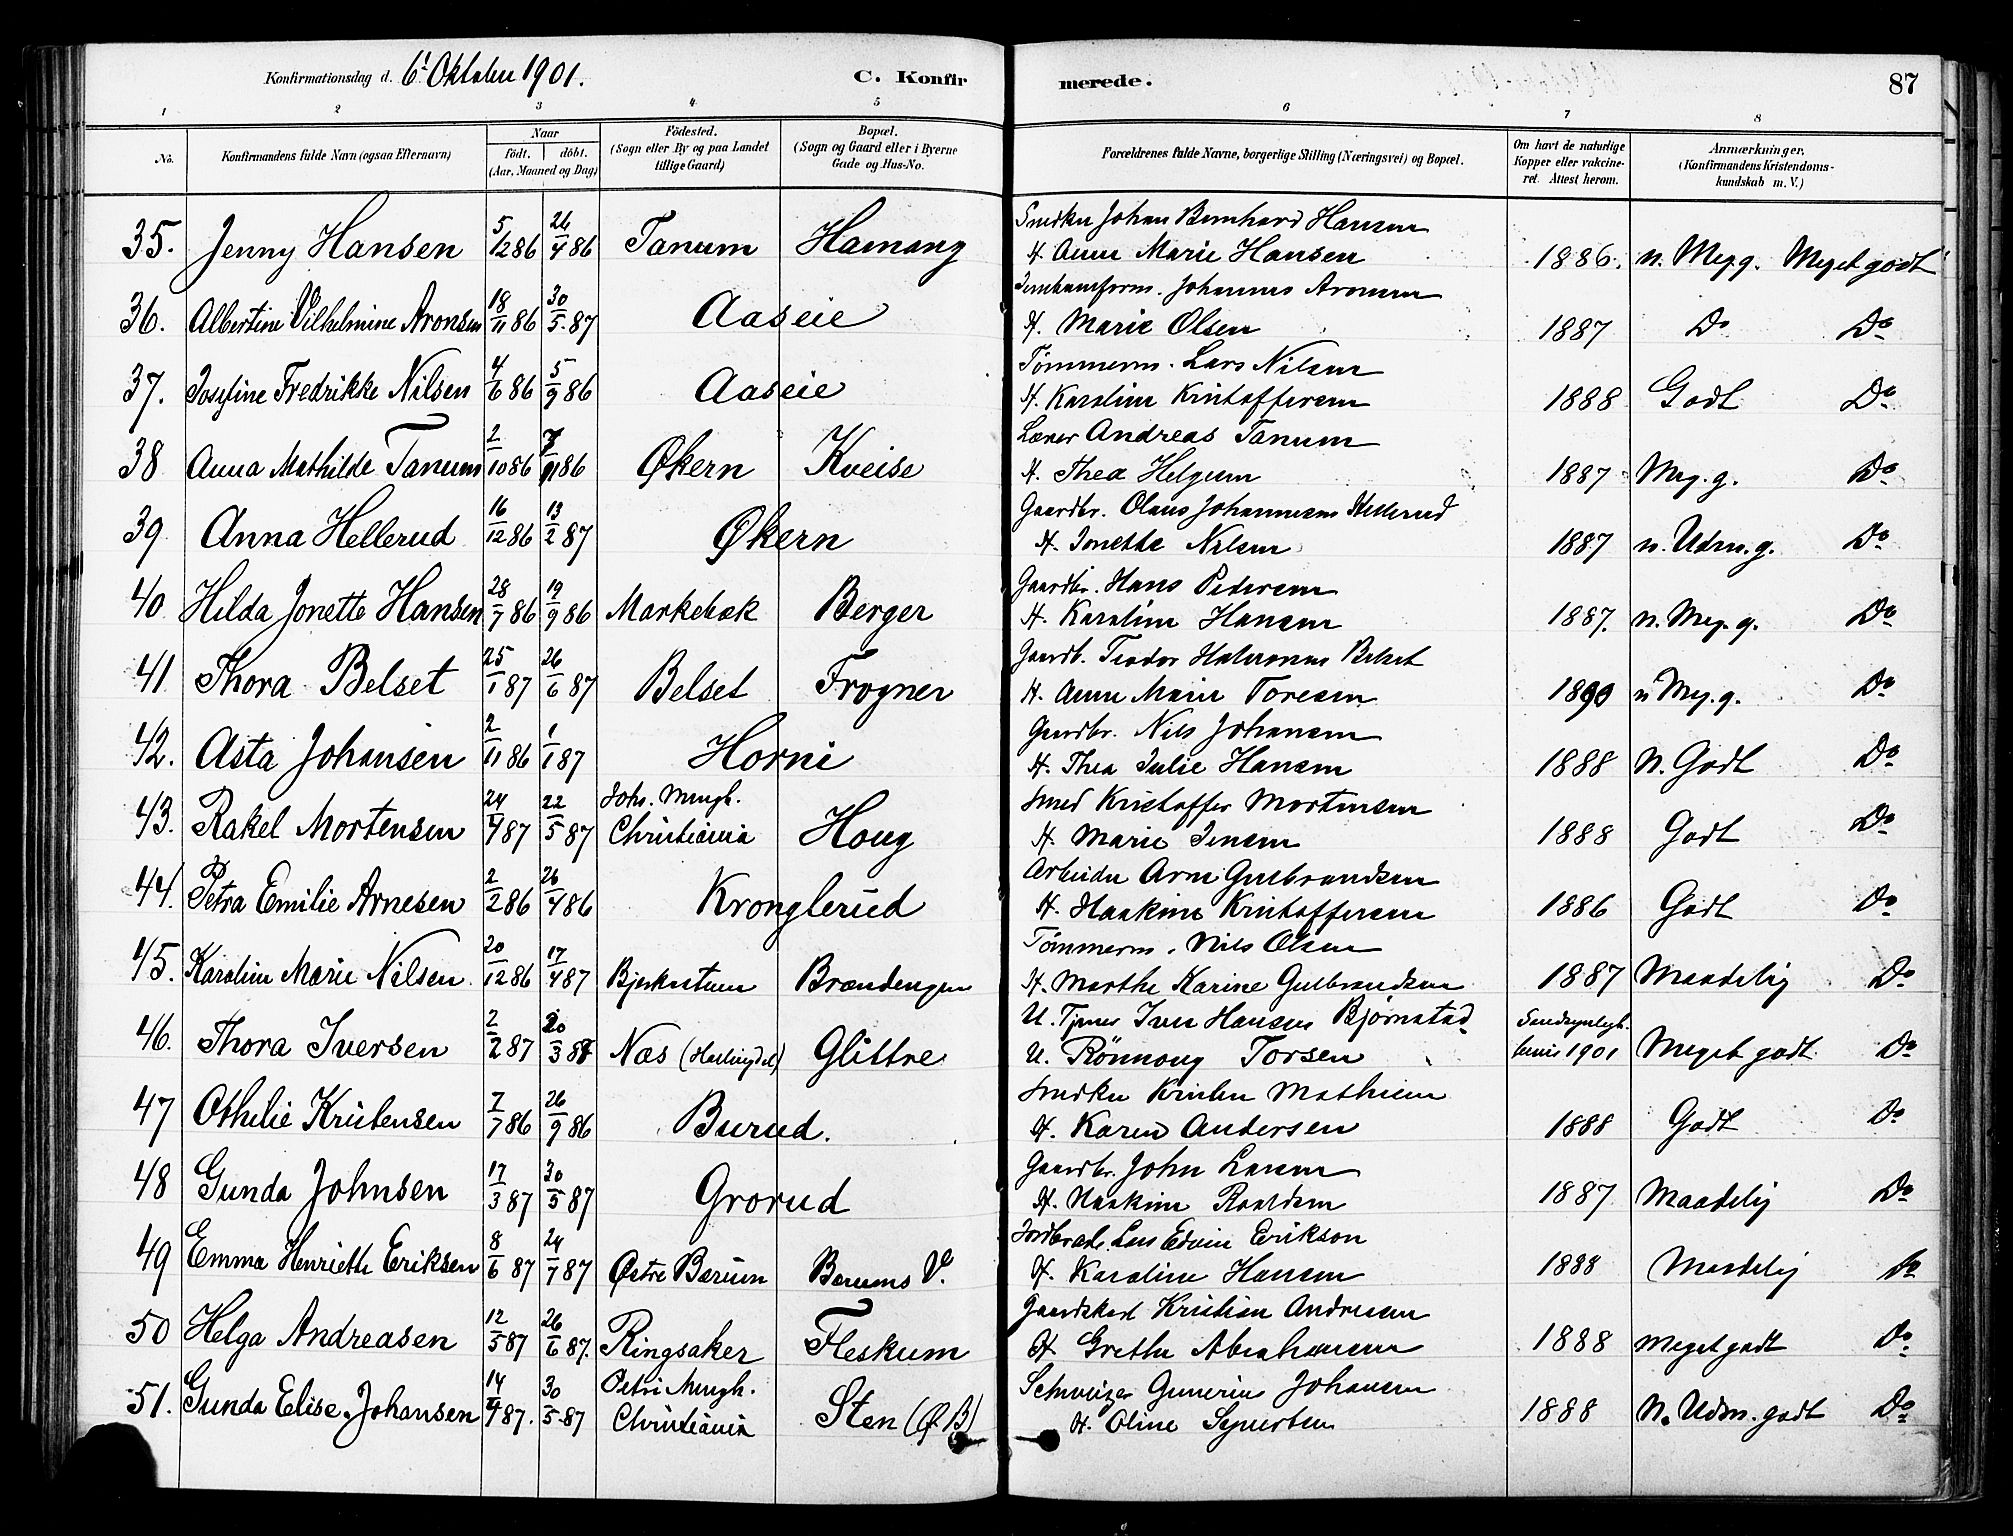 Konfirmationsdag d. 6t Oktober 1901.
C. Konfir
merede.
87
1 2 3 4 5 6 7 8
No.
Konfirmandens fulde Navn (ogsaa Efternavn)
Naar
født. døbt.
(Aar, Maaned og Dag)
Fødested.
(Sogn eller By og paa Landet
tillige Gaard)
Bopæl.
(Sogn og Gaard eller i Byerne
Gade og Hus-No.
Forældrenes fulde Navne, borgerlige Stilling (Næringsvei) og Bopæl.
Om havt de naturlige
Kopper eller vakcine-
ret. Attest herom.
Anmærkninger,
(Konfirmandens Kristendoms-
kundskab m. V.)
Snedker Johan Bernhard Hansen
35. Jenny Hansen 5/12 86 26/4 86 Tanum Hamang H. Anne Marie Hansen 1886. n. Meg. g. Meget godt
Johannes Aronsen
36. Albertine Vilhelmine Aronsen 18/11 86 30/5 87 Aaseie H. Marie Olsen 1887 Do Do
Tømmerm. Lars Nilsen
37. Josefine Fredrikke Nilsen 4/6 86 5/9 86 Aaseie H. Karoline Kristoffersen 1888 Godt Do
Lærer Andreas Tanum
38 Anna Mathilde Tanum 2/10 86 86 Økern Kveise H. Thea Helgum 1887 Meg. g. Do
Gaardbr. Olaus Johannesen Hellerud
39 Anna Hellerud 16/12 86 13/2 87 Økern H. Jonette Nilsen 1887 n. Udm. g. Do
Gaardbr. Hans Pedersen
40 Hilda Jonette Hansen 28/7 86 19/9 86 Markebæk Berger H. Karoline Hansen 1887. n. Meg. g. Do
Gaardb. Teodor Halvorsen Belset
41 Thora Belset 25/1 87 26/6 87 Belset Frogner H. Anne Marie Toresen 1890 n Meg. g. Do
Gaardbr. Nils Johansen
42. Asta Johansen 2/11 86 1/1 87 Horni H. Thea Julie Hansen 1888 N. Godt Do
Joh. Mngh. Smed Kristoffer Mortensen
43. Rakel Mortensen 24/4 87 22/5 87 Christiania Houg H. Marie Jensen 1888 Godt Do
Arbeider Arne Gulbrandsen
44. Petra Emilie Arnesen 2/2 86 26/4 86 Kronglerud H. Haakine Kristoffersen 1886 Godt Do
Tømmerm. Nils Olsen
45. Karoline Marie Nilsen 20/12 86 17/4 87 Bjerkestuen Brændengen H. Marthe Karine Gulbrandsen 1887 Maadelig Do
U. Tjener Iver Hansen Bjørnstad
46. Thora Iversen 2/2 87 20/3 87 Næs (Hallingdal) Glittre U. Rønnoug Torsen 1901 Meget godt Do
Snedker Kristen Mathisen
47 Othilie Kristensen 7/7 86 26/9 86 Burud. H. Karen Andersen 1888 Godt Do
Gaardbr. John Larsen
48 Gunda Johnsen 17/3 87 30/5 87 Grorud H. Haakine Roaldsen 1887 Maadelig Do
Jordbrudr. Lars Edvin Erikson
49 Emma Henriette Eriksen 8/6 87 24/7 87 Østre Bærum Bærums V. H. Karoline Hansen 1888 Maadelig Do
Gaardskarl Kristian Andreasen
50 Helga Andreasen 12/5 87 26/6 87. Ringsaker Fleskum H. Grethe Abrahamsen 1888 Meget godt Do
Petri Mngh. Schweizer Gunerius Johansen
51. Gunda Elise Johansen 14/4 87. 30/5 87 Christiania Sten (Ø B) H. Oline Syversten 1888 N. Udm. godt Do